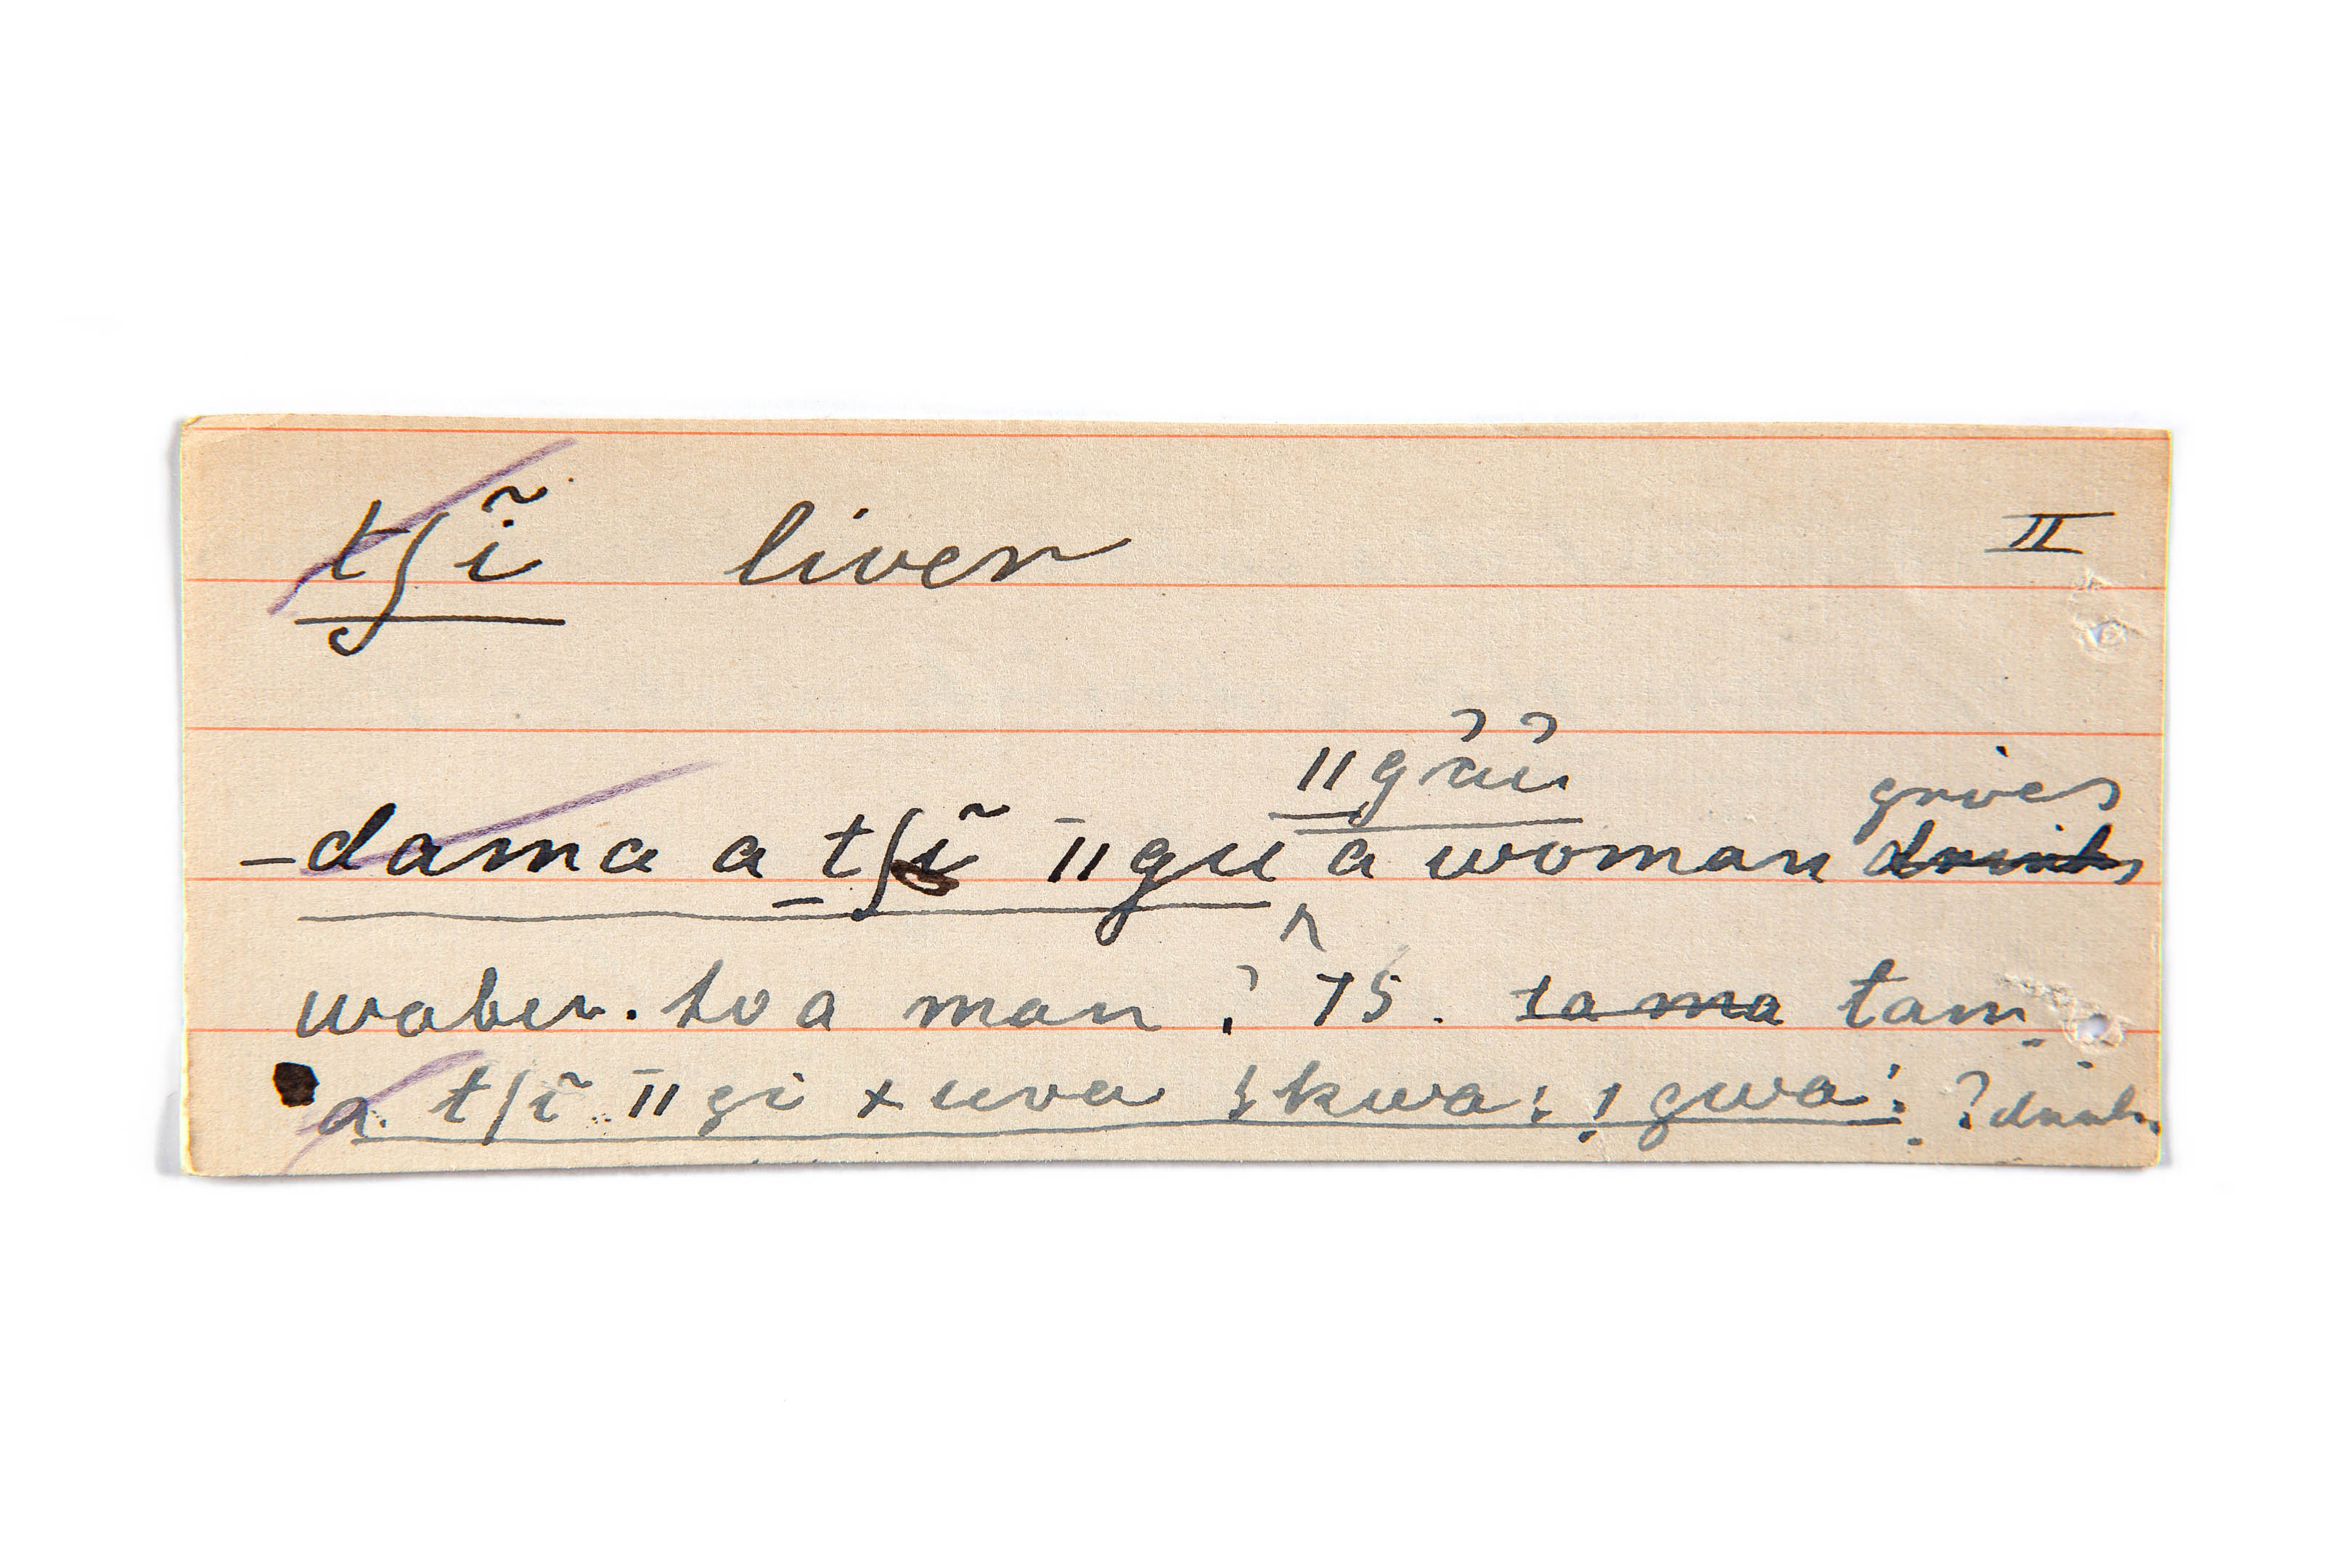 tʃĩ liver II
ǁgũũ gives
–dama a tʃĩ ǁgu a woman drinks
water. to a man ? 75. tama tam
a. tʃĩ ǁgi xuva kwa: ! gwa: ? drinks